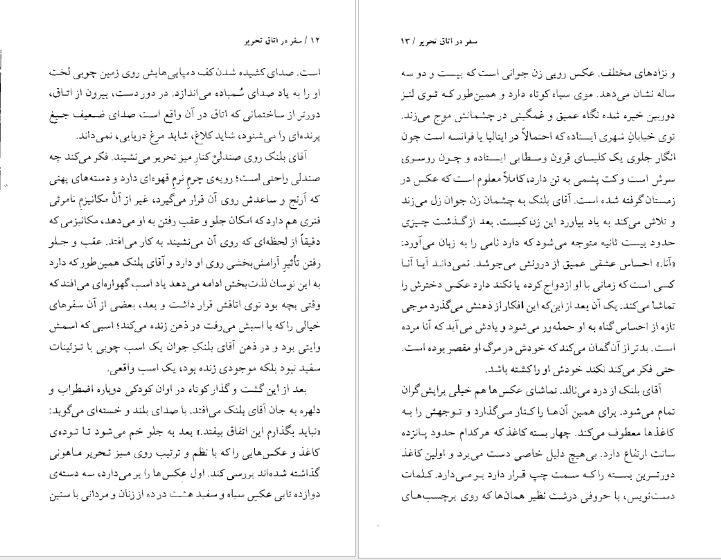 ۱۲ / سفر در اتاق تحریر
است. صدای کشیده شدن کف دمپایی‌هایش روی زمین چوبی لخت
او را به یاد صدای سُمباده می‌اندازد. در دوردست، بیرون از اتاق،
دورتر از ساختمانی که اتاق در آن واقع است صدای ضعیف جیغ
پرنده‌ای را می‌شنود، شاید کلاغ، شاید مرغ دریایی، نمی‌داند.
آقای بلنک روی صندلیِ کنار میز تحریر می‌نشیند. فکر می‌کند چه
صندلی راحتی است؛ رویه‌ی چرم نرمِ قهوه‌ای دارد و دسته‌های پهنی
که آرنج و ساعدش روی آن قرار می‌گیرد، غیر از آن مکانیزم نامرئی
فنری هم دارد که امکان جلو و عقب رفتن به او می‌دهد، مکانیزمی که
دقیقاً از لحظه‌ای که روی آن می‌نشیند به کار می‌افتد. عقب و جلو
رفتن تأثیرِ آرامش‌بخشی روی او دارد و آقای بلنک همین‌طور که دارد
به این نوسان لذت‌بخش ادامه می‌دهد یاد اسب گهواره‌ای می‌افتد که
وقتی بچه بود توی اتاقش قرار داشت و بعد، بعضی از آن سفرهای
خیالی را که با اسبش می‌رفت در ذهن زنده می‌کند؛ اسبی که اسمش
وایتی بود و در ذهن آقای بلنک جوان یک اسب چوبی با تزئینات
سفید نبود بلکه موجودی زنده بود، یک اسب واقعی.
بعد از این گشت و گذار کوتاه در اوان کودکی دوباره اضطراب و
دلهره به جان آقای بلنک می‌افتد. با صدای بلند و خسته‌ای می‌گوید:
«نباید بگذارم این اتفاق بیفتد.» بعد به جلو خم می‌شود تا توده‌ی
کاغذ و عکس‌هایی را که با نظم و ترتیب روی میز تحریر ماهونی
گذاشته شده‌اند بررسی کند. اول عکس‌ها را برمی‌دارد، سه دسته‌ی
دوازده تایی عکس سیاه و سفید هشت در ده از زنان و مردانی با سنین
سفر در اتاق تحریر / ۱۳
و نژادهای مختلف. عکس رویی زن جوانی است که بیست و دو سه
ساله نشان می‌دهد. موی سیاه کوتاه دارد و همین‌طور که توی لنز
دوربین خیره شده نگاه عمیق و غمگینی در چشمانش موج می‌زند.
توی خیابانِ شهری ایستاده که احتمالاً در ایتالیا یا فرانسه است چون
انگار جلوی یک کلیسای قرون وسطایی ایستاده و چون روسری
سرش است و کت پشمی به تن دارد، کاملاً معلوم است که عکس در
زمستان گرفته شده است. آقای بلنک به چشمان زن جوان زل می‌زند
و تلاش می‌کند به یاد بیاورد این زن کیست. بعد از گذشت چیزی
حدود بیست ثانیه متوجه می‌شود که دارد نامی را به زبان می‌آورد:
«آنا.» احساس عشقی عمیق از درونش می‌جوشد. نمی‌داند آیا آنا
کسی است که زمانی با او ازدواج کرده یا نکند دارد عکس دخترش را
تماشا می‌کند. یک آن بعد از این‌که این افکار از ذهنش می‌گذرد موجی
تازه از احساس گناه به او حمله‌ور می‌شود و یادش می‌آید که آنا مرده
است. بدتر از آن گمان می‌کند که خودش در مرگ او مقصر بوده است.
حتی فکر می‌کند نکند خودش او را کشته باشد.
آقای بلنک از درد می‌نالد. تماشای عکس‌ها هم خیلی برایش گران
تمام می‌شود. برای همین آن‌ها را کنار می‌گذارد و توجهش را به
کاغذها معطوف می‌کند. چهار بسته کاغذ که هرکدام حدود پانزده
سانت ارتفاع دارد. بی‌هیچ دلیل خاصی دست می‌برد و اولین کاغذ
دورترین بسته را که سمت چپ قرار دارد برمی‌دارد. کلمات
دست‌نویس، با حروفی درشت نظیر همان‌ها که روی برچسب‌های